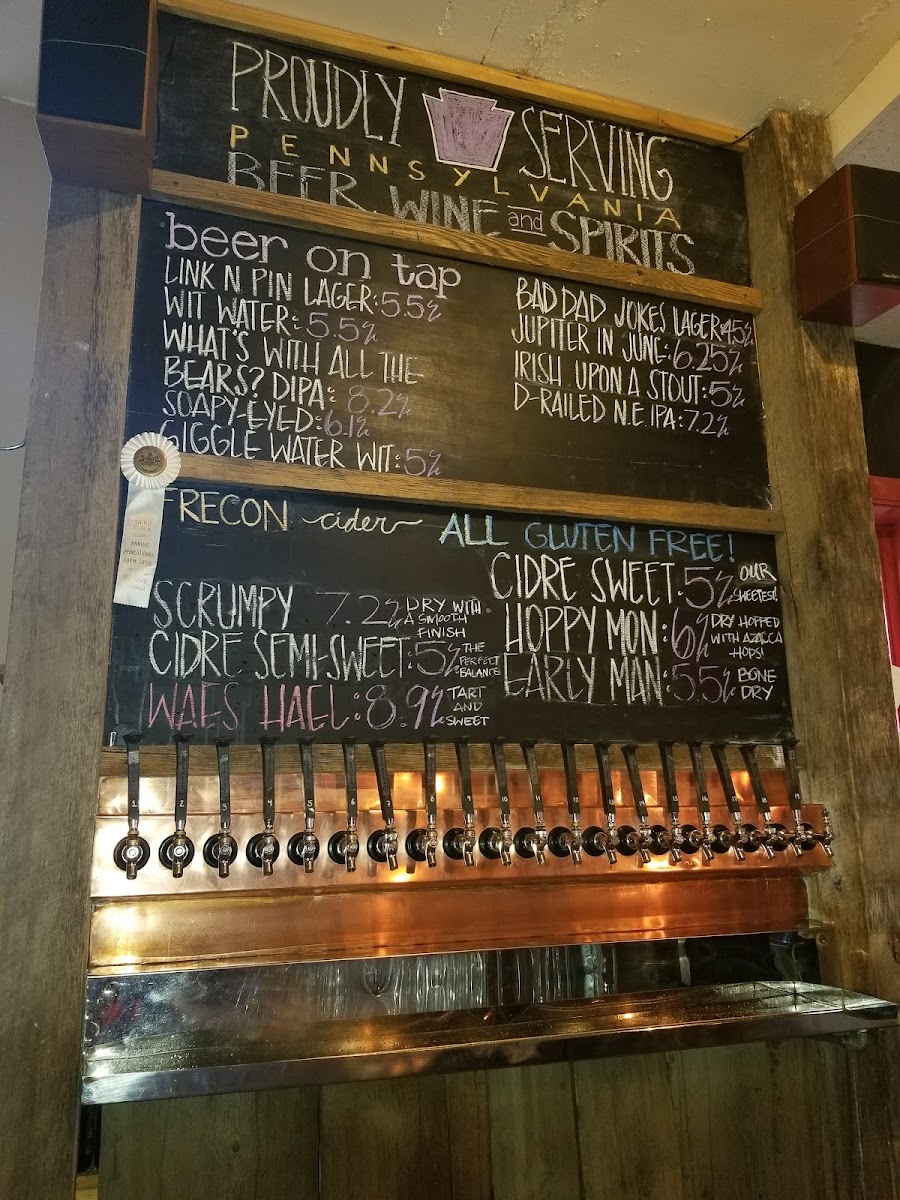 PROUDLY SERVING
PENNSYLVANIA
BEER, WINE and SPIRITS
beer on tap
LINK N PIN LAGER: 5.5%
WIT WATER: 5.5%
WHAT'S WITH ALL THE
BEARS? DIPA: 8.2%
SOAPY-EYED: 6.1%
GIGGLE WATER WIT: 5%
BAD DAD JOKES LAGER: 4.5%
JUPITER IN JUNE: 6.25%
IRISH UPON A STOUT: 5%
D-RAILED N.E. IPA: 7.2%
FRECON cider
ALL GLUTEN FREE!
SCRUMPY 7.2% DRY WITH
A SMOOTH
FINISH
CIDRE SEMI-SWEET: 5% THE
PERFECT
BALANCE
WAES HAEL: 8.9% TART
AND
SWEET
CIDRE SWEET 5% OUR
SWEETEST!
HOPPY MON: 6% DRY HOPPED
WITH AZACCA
HOPS!
EARLY MAN: 5.5% BONE
DRY
THIRD
PLACE
ANNUAL
PENNSYLVANIA
FARM SHOW
1 2 3 4 5 6 7 8 9 10 11 12 13 14 15 16 17 18 19